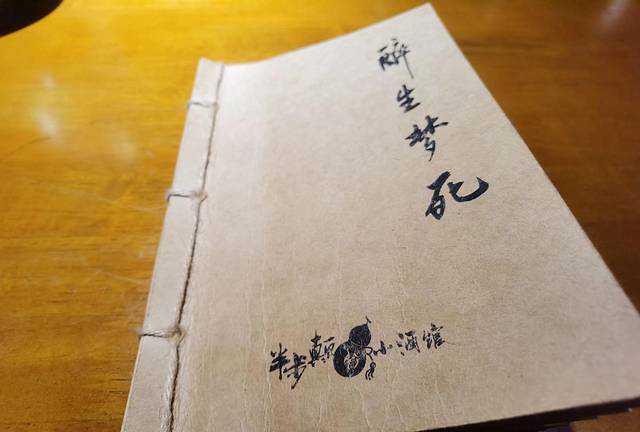 醉生梦死
半步颠小酒馆